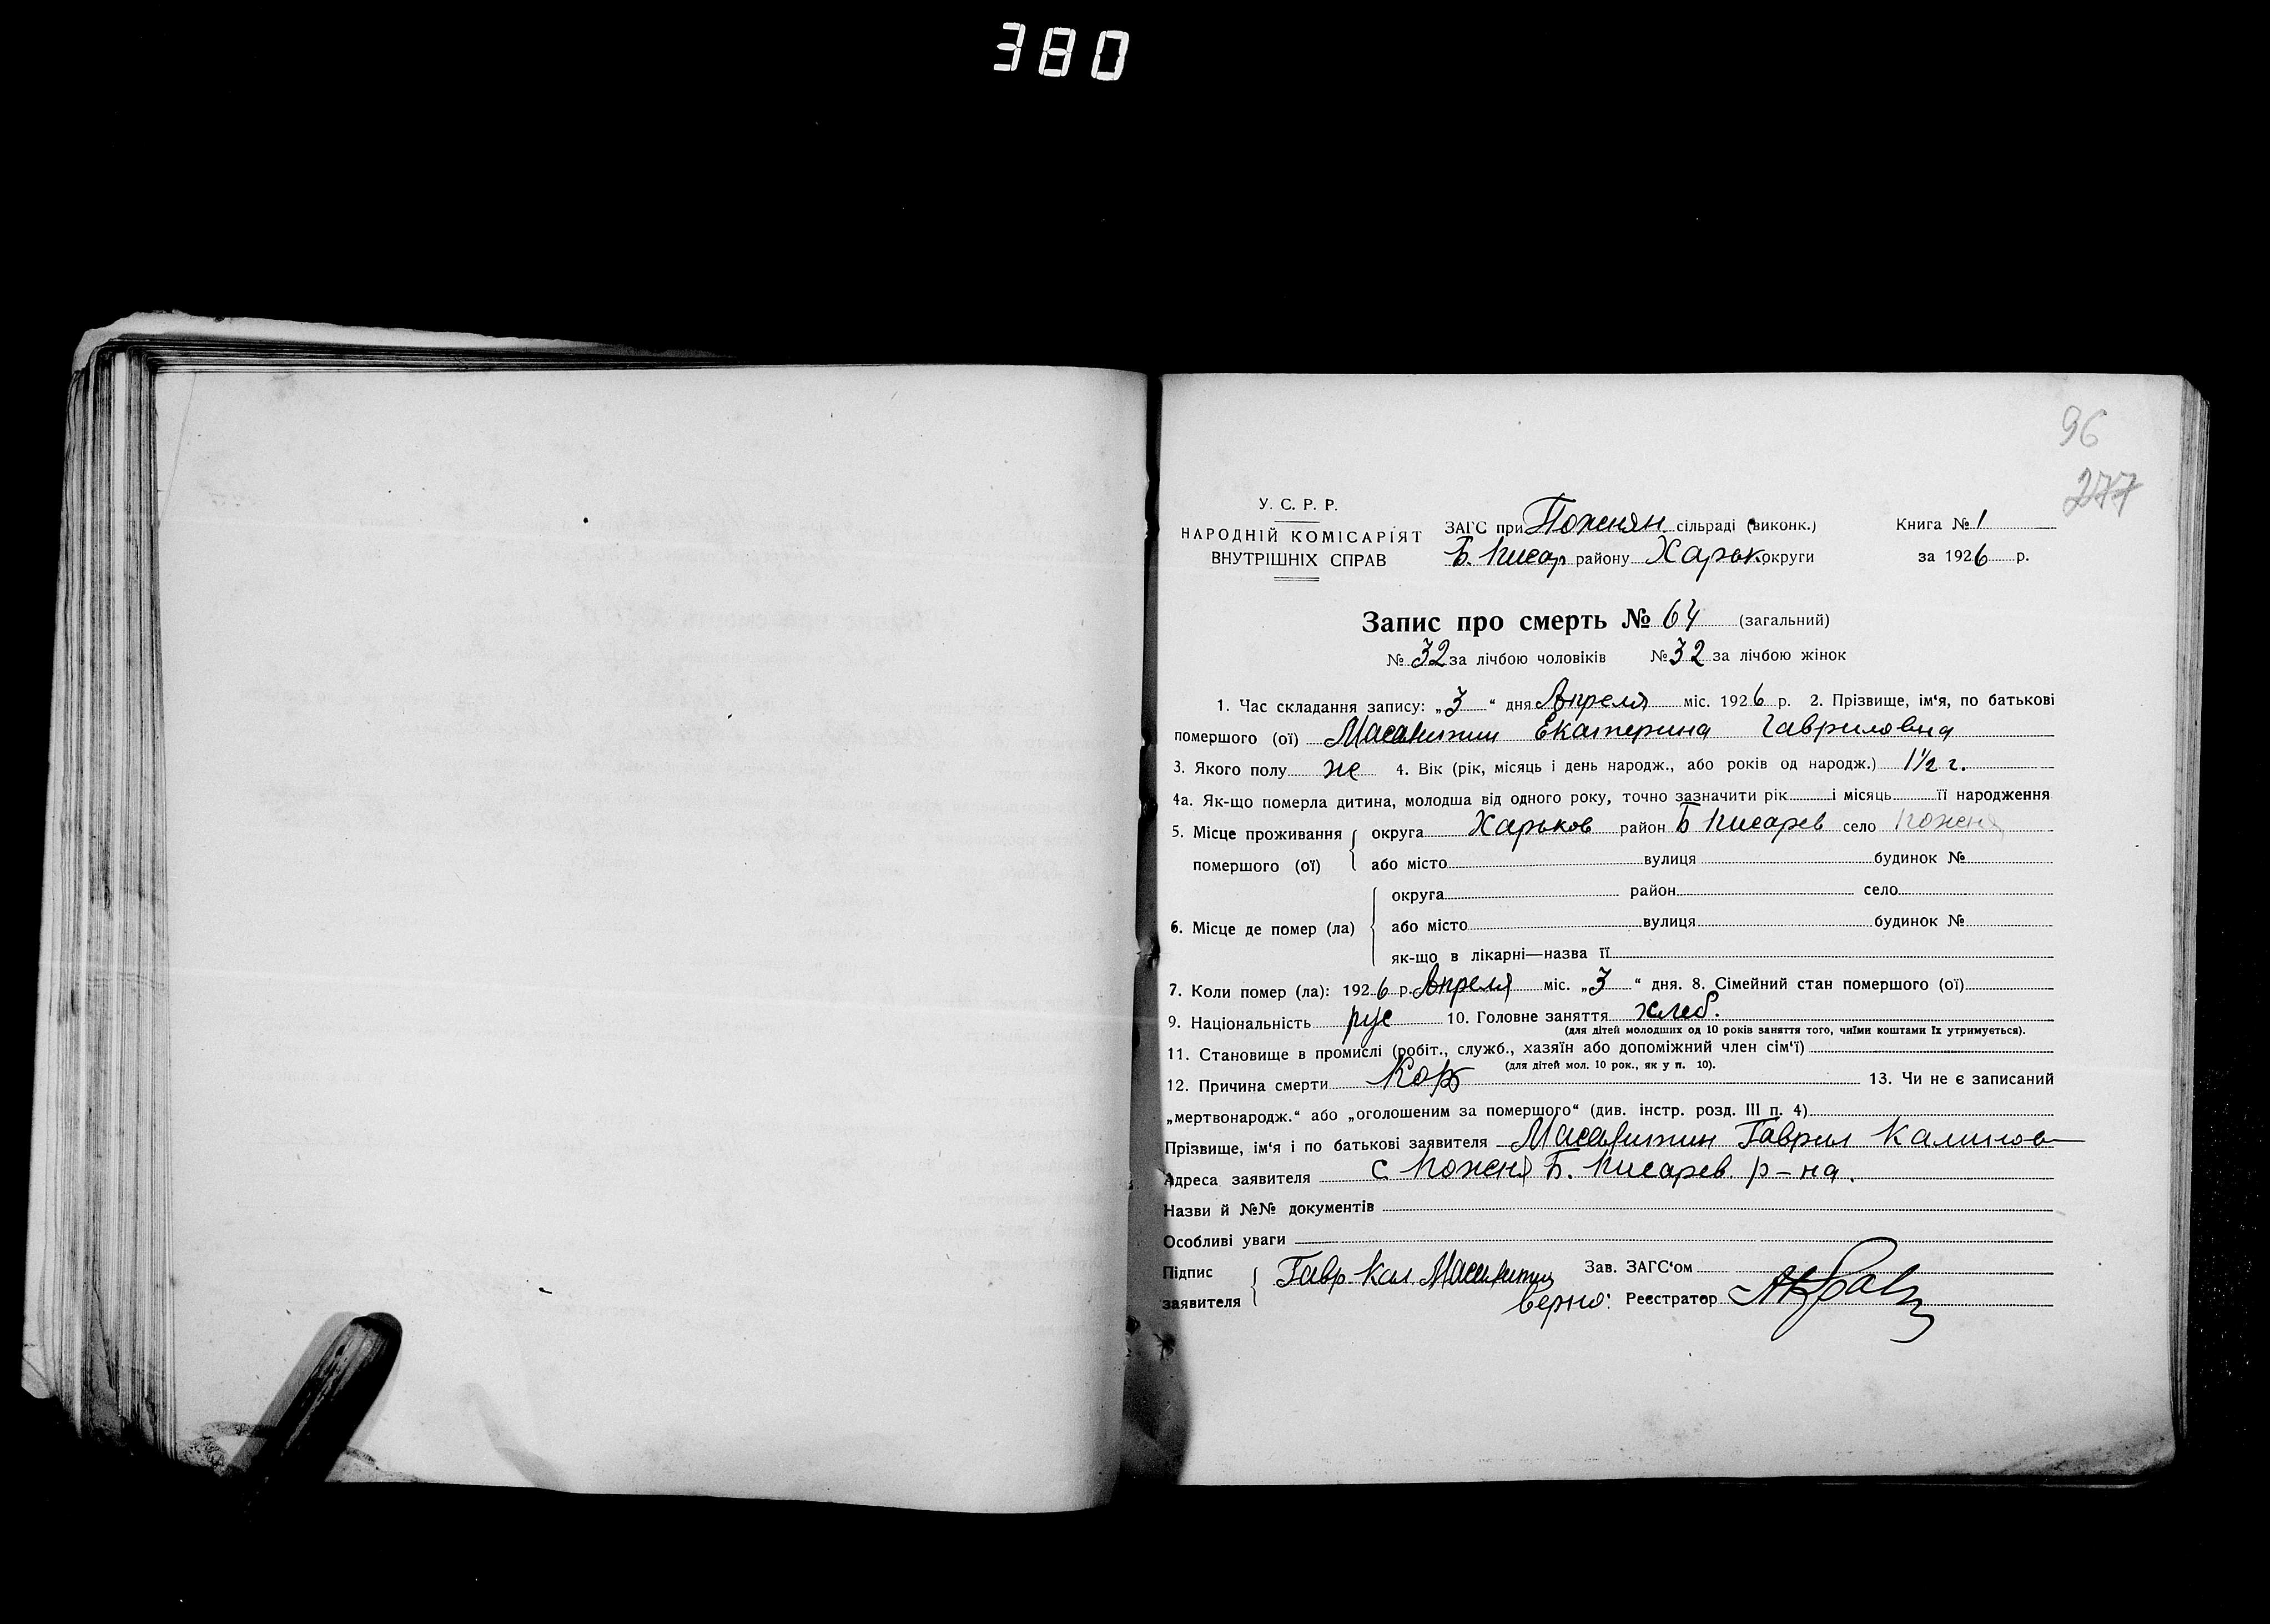 380
96
277
У. С. Р. Р.
НАРОДНІЙ КОМІСАРІЯТ
ВНУТРІШНІХ СПРАВ
ЗАГС при Пожнян сільраді (виконк.)
Б. Писар району Харьк округи
Книга № 1
за 1926 р.
Запис про смерть № 64 (загальний)
№ 32 за лічбою чоловіків № 32 за лічбою жінок
1. Час складання запису: „3“ дня Апреля міс. 1926 р. 2. Прізвище, ім‘я, по батькові
помершого (ої) Масалитин Екатерина Гавриловна
3. Якого полу же 4. Вік (рік, місяць і день народж., або років од народж.) 1½ г.
4а. Як-що померла дитина, молодша від одного року, точно зазначити рік і місяць її народження
5. Місце проживання помершого (ої) округа Харьков район Б Писарев село Пожня
або місто вулиця будинок №
6. Місце де помер (ла) округа район село
або місто вулиця будинок №
як-що в лікарні—назва її
7. Коли помер (ла): 1926 р. Апреля міс. „3“ дня. 8. Сімейний стан помершого (ої)
9. Національність рус 10. Головне заняття хлеб.
(для дітей молодших од 10 років заняття того, чиїми коштами їх утримується).
11. Становище в промислі (робіт., служб., хазяїн або допоміжний член сім‘ї)
(для дітей мол. 10 рок., як у п. 10).
12. Причина смерти Корь 13. Чи не є записаний
„мертвонародж.“ або „оголошеним за помершого“ (див. інстр. розд. III п. 4)
Прізвище, ім‘я і по батькові заявителя Масалитин Гаврил Калинов
Адреса заявителя с Пожня Б. Писарев. р-на.
Назви й №№ документів
Особливі уваги
Підпис заявителя Гавр Кал Масалитин
Зав. ЗАГС‘ом
Верно: Реєстратор